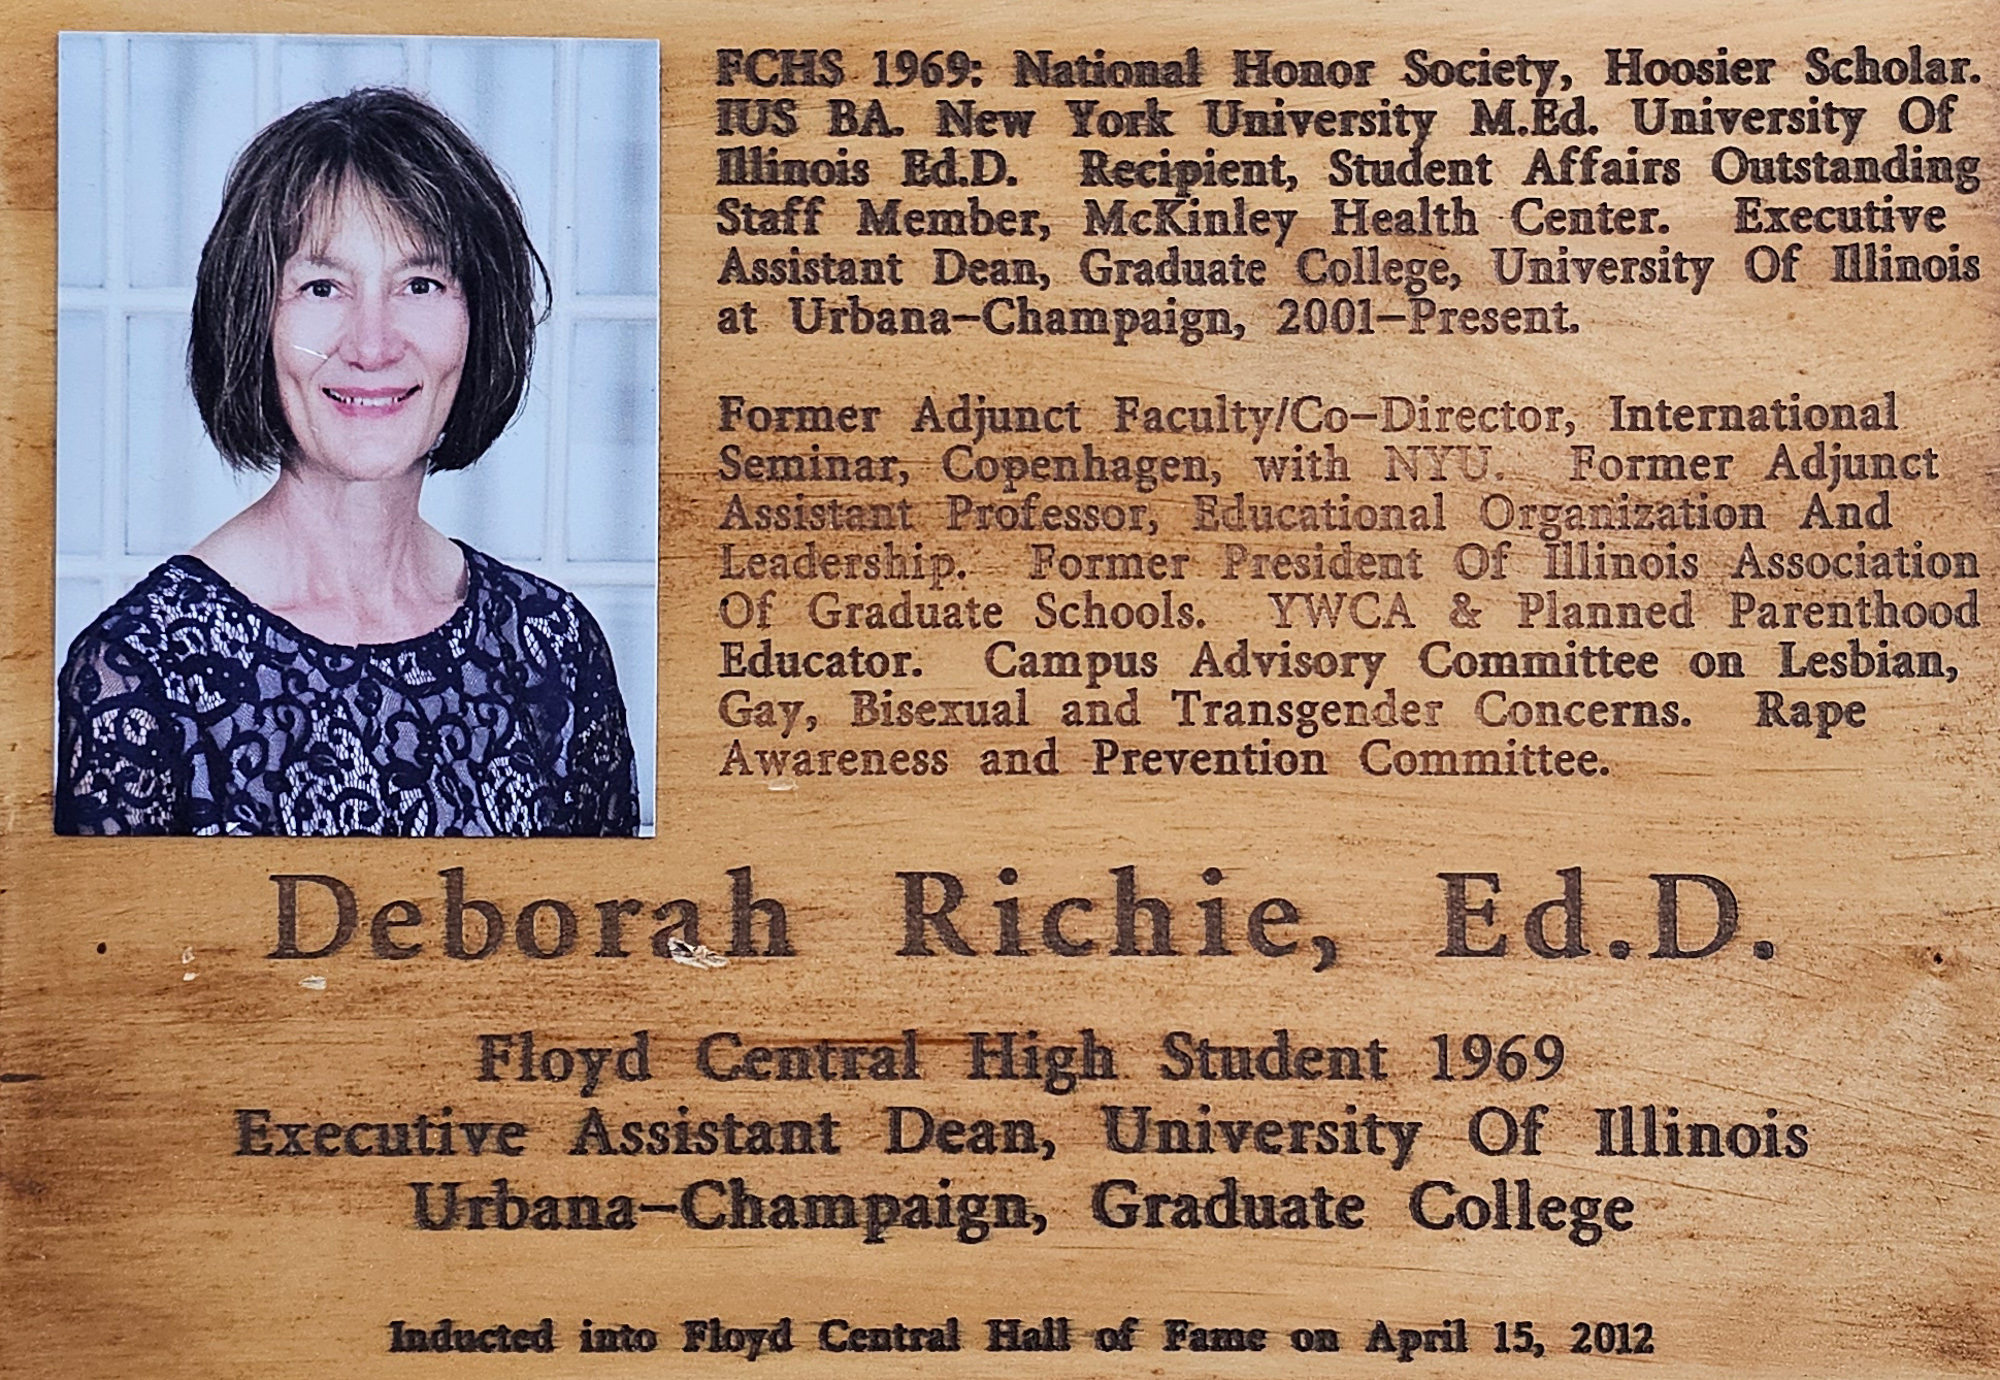 FCHS 1969: National Honor Society, Hoosier Scholar.
IUS BA. New York University M.Ed. University Of
Illinois Ed.D. Recipient, Student Affairs Outstanding
Staff Member, McKinley Health Center. Executive
Assistant Dean, Graduate College, University Of Illinois
at Urbana-Champaign, 2001-Present.
Former Adjunct Faculty/Co-Director, International
Seminar, Copenhagen, with NYU. Former Adjunct
Assistant Professor, Educational Organization And
Leadership. Former President Of Illinois Association
Of Graduate Schools. YWCA & Planned Parenthood
Educator. Campus Advisory Committee on Lesbian,
Gay, Bisexual and Transgender Concerns. Rape
Awareness and Prevention Committee.
Deborah Richie, Ed.D.
Floyd Central High Student 1969
Executive Assistant Dean, University Of Illinois
Urbana-Champaign, Graduate College
Inducted into Floyd Central Hall of Fame on April 15, 2012